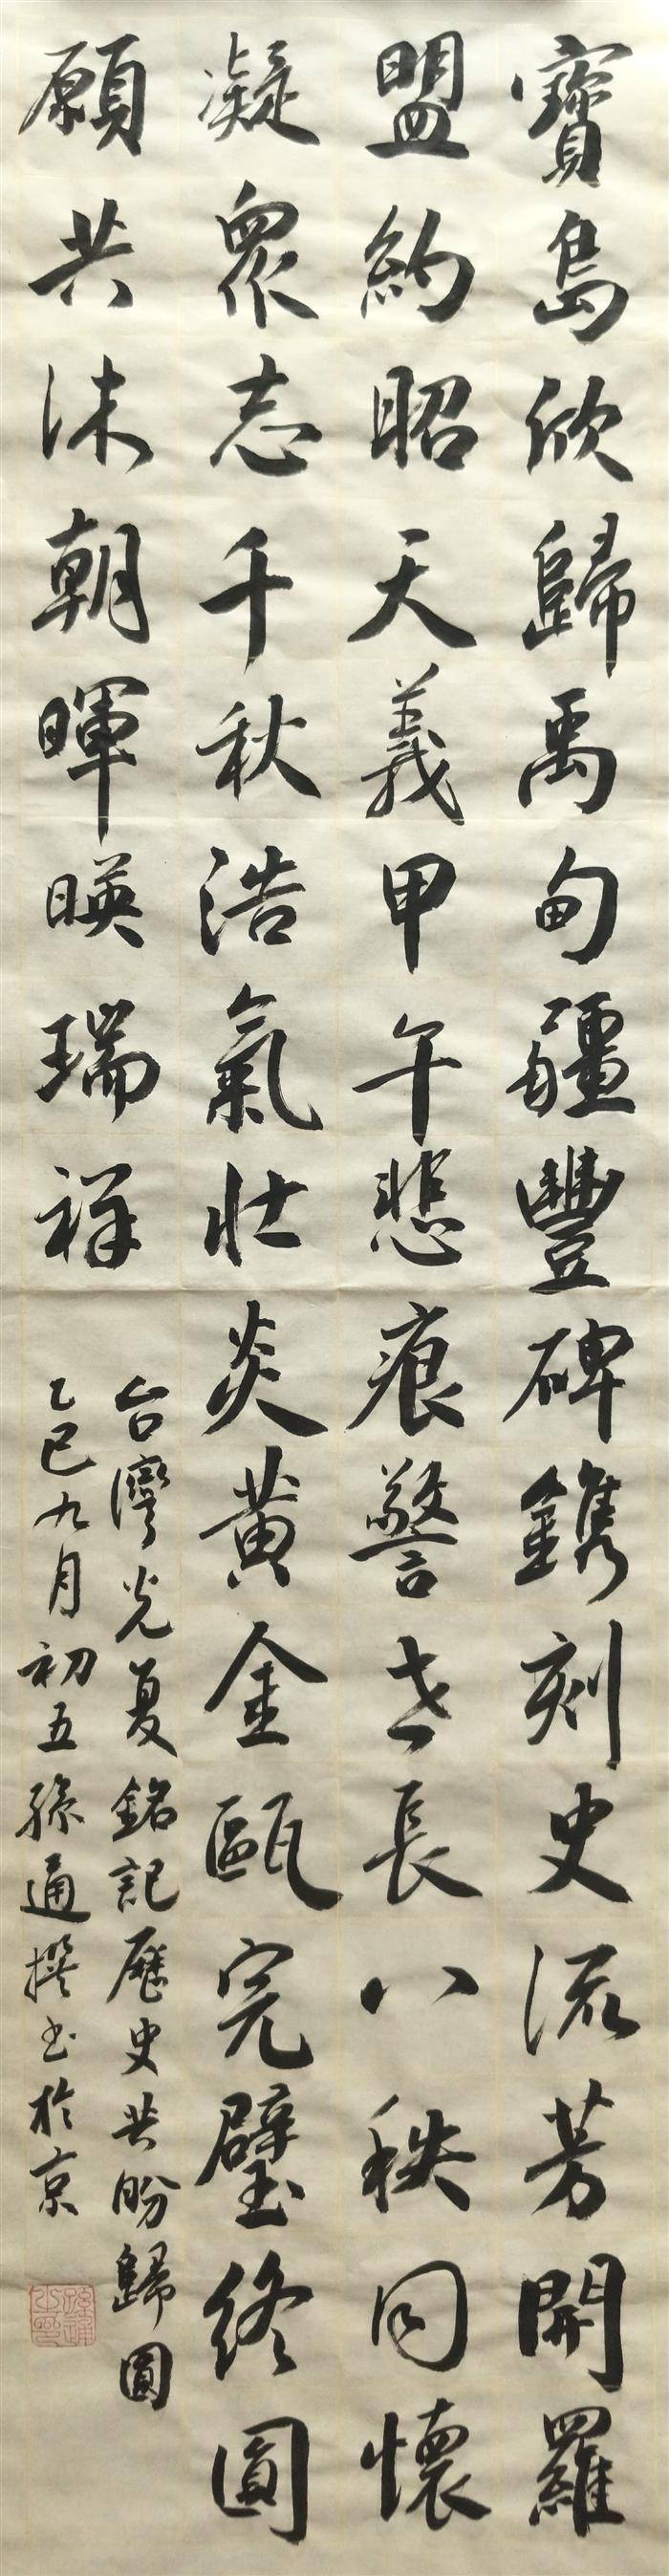 寶島欣歸禹甸疆豐碑鐫刻史流芳開羅
盟約昭天義甲午悲痕警世長八秩同懷
凝眾志千秋浩氣壯炎黃金甌完璧終圓
願共沐朝暉暎瑞祥
台灣光夏銘記歷史共盼歸圓
乙巳九月初五孫通撰書於京